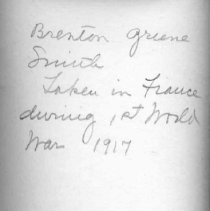 Brenton Greene
Smith
Taken in France
during 1st World
War 1917